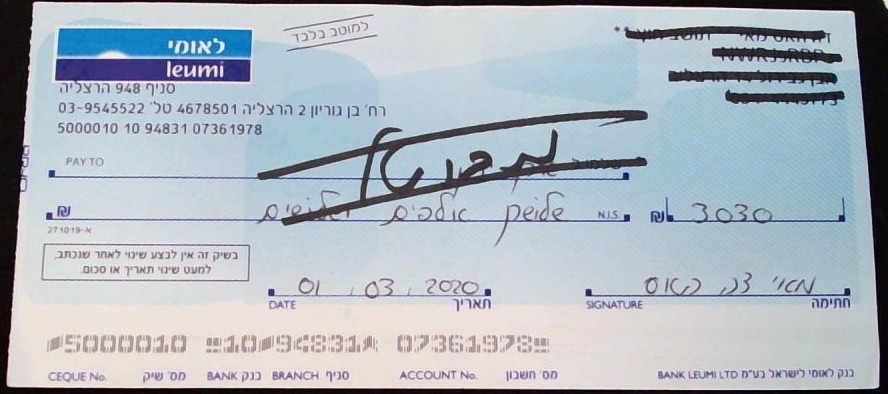 לאומי
leumi
למוטב בלבד
סניף 948 הרצליה
רח' בן גוריון 2 הרצליה 4678501 טל' 03-9545522
5000010 10 94831 07361978
PAY TO
מבוטל
₪ שלושת אלפים ושלושים N.I.S. ₪ 3030
27.10.19-א
בשיק זה אין לבצע שינוי לאחר שנכתב,
למעט שינוי תאריך או סכום.
01.03.2020
DATE תאריך
SIGNATURE חתימה
5000010 10 94831 07361978
CEQUE No. מס' שיק BANK בנק BRANCH סניף ACCOUNT No. מס' חשבון
BANK LEUMI LTD בנק לאומי לישראל בע"מ